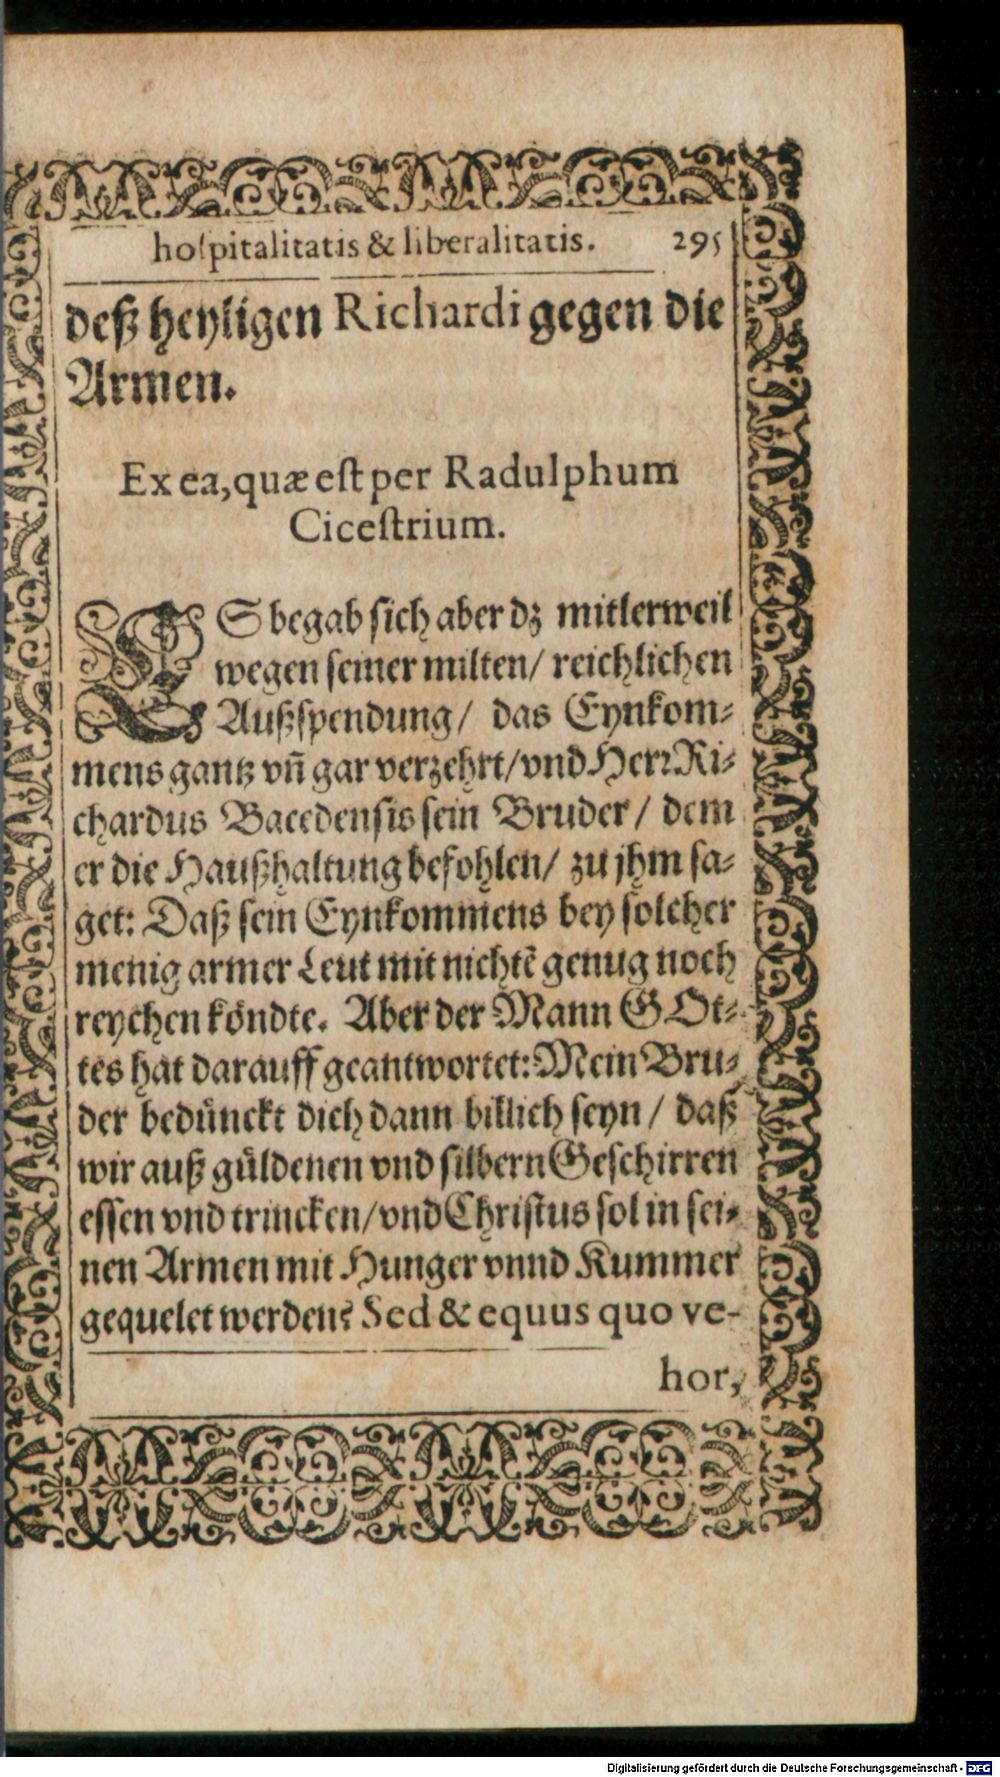 hospitalitatis & liberalitatis. 295
deß heyligen Richardi gegen die
Armen.
Ex ea, quæ est per Radulphum
Cicestrium.
ES begab sich aber dz mitlerweil
wegen seiner milten/ reichlichen
Außspendung/ das Eynkom⸗
mens gantz vñ gar verzehrt/ vnd Herr Ri⸗
chardus Bacedensis sein Bruder/ dem
er die Haußhaltung befohlen/ zu jhm sa⸗
get: Daß sein Eynkommens bey solcher
menig armer Leut mit nichtẽ genug noch
reychen köndte. Aber der Mann GOt⸗
tes hat darauff geantwortet: Mein Bru⸗
der bedünckt dich dann billich seyn/ daß
wir auß güldenen vnd silbern Geschirren
essen vnd trincken/ vnd Christus sol in sei⸗
nen Armen mit Hunger vnnd Kummer
gequelet werden? Sed & equus quo ve-
hor,
Digitalisierung gefördert durch die Deutsche Forschungsgemeinschaft - DFG